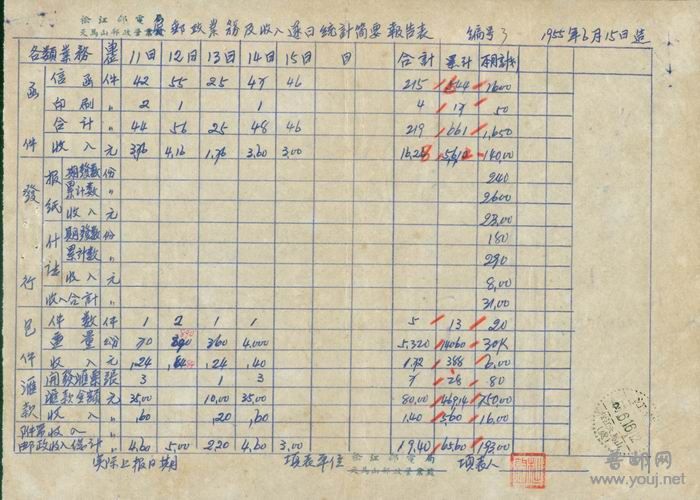 淞江邮电局
天馬山邮政营業處 邮政業务及收入逐日統計简要報告表 编号3 1955年6月15日造
各類業務 單位 11日 12日 13日 14日 15日 日 合计 累计 本月计划
函件 信函 件 42 55 25 47 46 215 644 1600
印刷 〃 2 1 1 4 17 50
合计 〃 44 56 25 48 46 219 661 1,650
收入 元 3.76 4.16 1.76 3.60 3.00 140.00
發行 报纸 期發数 份 240
累计数 〃 2600
收入 元 23.00
什誌 期發数 份 180
累计数 〃 290
收入 元 8.00
收入合计 〃 31.00
包件 件数 件 1 2 1 1 5 13 20
重量 70 890 360 4,000 5,320 14060 30K
收入 元 .24 .84 .24 .40 1.72 3.88 6.00
滙款 開發滙票 張 3 1 3 7 28 80
滙款金額 元 35.00 10.00 35.00 80.00 469.14 750.00
收入 〃 .60 .20 .60 1.40 5.60 16.00
附属收入 〃
邮政收入總计 〃 4.60 5.00 2.20 4.60 3.00 19.40 65.60 193.00
实际上报日期 填表单位 淞江邮电局 填表人
天馬山邮政营業處
普邮网
www.youj.net